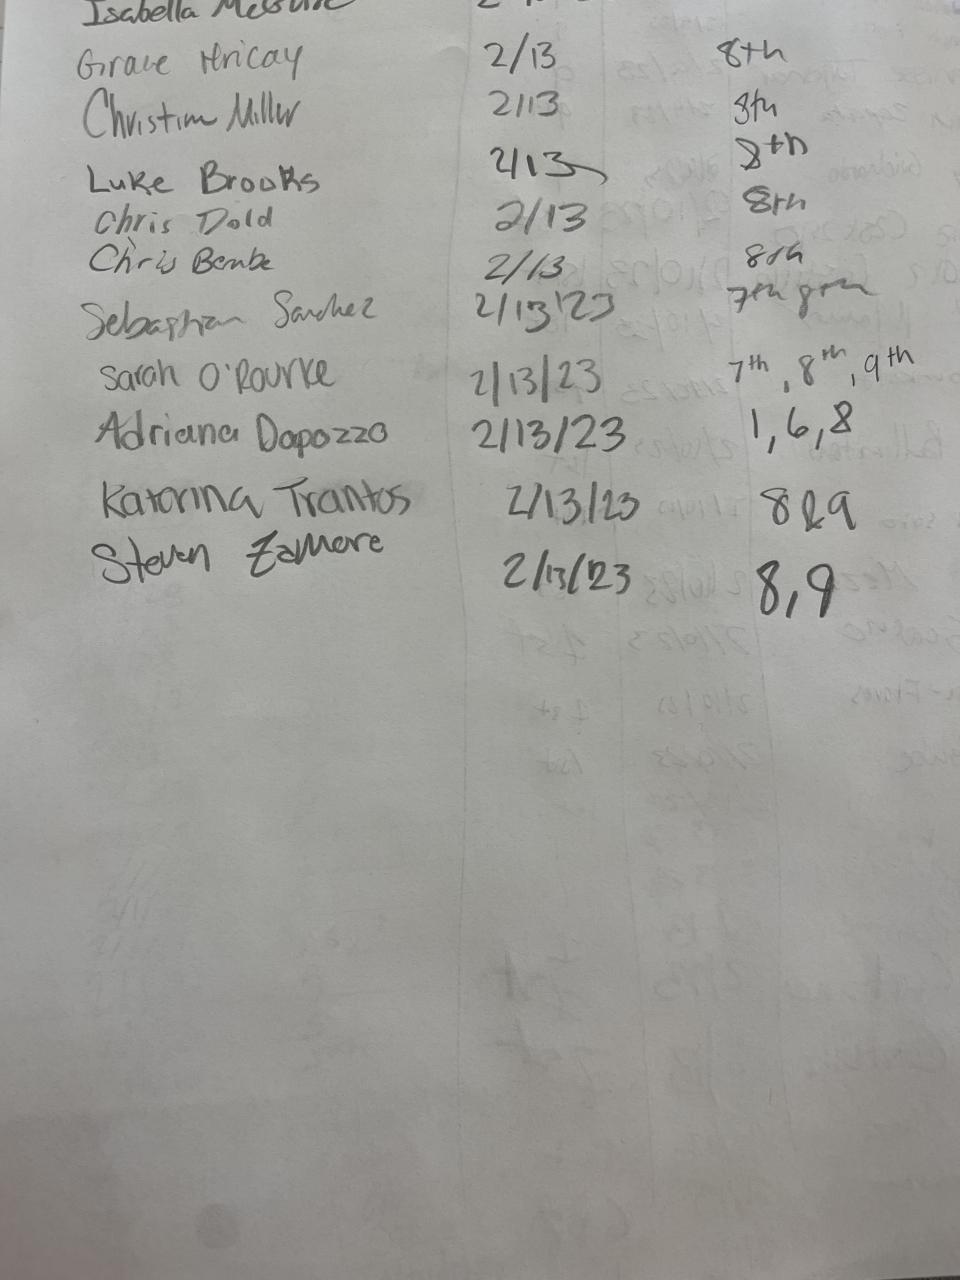 Isabella
Grace Hricay 2/13 8th
Christian Miller 2/13 8th
Luke Brooks 2/13 8th
Chris Dold 2/13 8th
Chris Bembe 2/13 8th
Sebastian Sanchez 2/13/23 7th 8th
Sarah O'Rourke 2/13/23 7th, 8th, 9th
Adriana Dapozzo 2/13/23 1, 6, 8
Katerina Trantos 2/13/23 8 & 9
Steven Zamore 2/13/23 8, 9